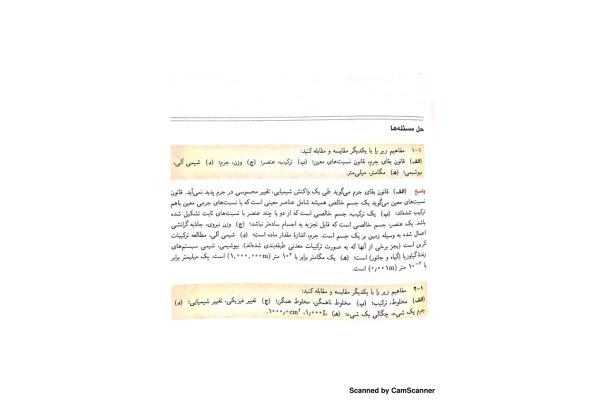 حل مسئله‌ها
۱-۱ مفاهیم زیر را با یکدیگر مقایسه و مقابله کنید:
(الف) قانون بقای جرم، قانون نسبت‌های معین؛ (ب) ترکیب، عنصر؛ (ج) وزن، جرم؛ (د) شیمی آلی،
بیوشیمی؛ (ه) مگامتر، میلی‌متر.
پاسخ (الف) قانون بقای جرم می‌گوید طی یک واکنش شیمیایی، تغییر محسوسی در جرم پدید نمی‌آید. قانون
نسبت‌های معین می‌گوید یک جسم خالص همیشه شامل عناصر معینی است که با نسبت‌های جرمی معین باهم
ترکیب شده‌اند؛ (ب) یک ترکیب، جسم خالصی است که از دو یا چند عنصر با نسبت‌های ثابت تشکیل شده
باشد. یک عنصر، جسم خالصی است که قابل تجزیه به اجسام ساده‌تر نباشد؛ (ج) وزن نیروی جاذبه گرانشی
اعمال شده به وسیله زمین بر یک جسم است. جرم، اندازهٔ مقدار ماده است؛ (د) شیمی آلی، مطالعه ترکیبات
کربن است (بجز برخی از آنها که به صورت ترکیبات معدنی طبقه‌بندی شده‌اند). بیوشیمی، شیمی سیستم‌های
زندهٔ گیاوزیا (گیاه و جانور) است؛ (ه) یک مگامتر برابر با ۱۰⁶ متر (۱,۰۰۰,۰۰۰m) است. یک میلیمتر برابر
با ۱۰⁻³ متر (۰٫۰۰۱m) است.
۲-۱ مفاهیم زیر را با یکدیگر مقایسه و مقابله کنید:
(الف) مخلوط، ترکیب؛ (ب) مخلوط ناهمگن، مخلوط همگن؛ (ج) تغییر فیزیکی، تغییر شیمیایی؛ (د)
جرم یک شیء، چگالی یک شیء؛ (ه) ۱٫۰۰۰L، ۱۰۰۰٫۰cm³.
Scanned by CamScanner